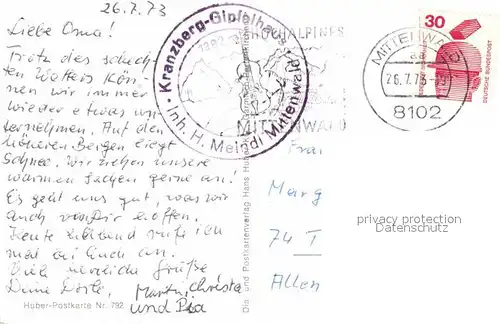 26.7.73
Liebe Oma!
Trotz des schlech-
ten Wetters kön-
nen wir immer
wieder etwas un-
ternehmen. Auf den
höheren Bergen liegt
Schnee. Wir ziehen unsere
warmen Sachen gerne an!
Es geht uns gut, was wir
auch von Dir hoffen.
Heute Abend rufe ich
mal bei Euch an.
Viele herzliche Grüße
Deine Dorle, Martin, Christa
und Pia
Huber-Postkarte Nr. 792
Dia- und Postkartenverlag Hans Huber
Kranzberg-Gipfelhaus
Inh. H. Meindl Mittenwald
HOCHALPINES
MITTENWALD
MITTENWALD
26.7.73
8102
30
DEUTSCHE BUNDESPOST
Frau
Marg
74 T
Allen
privacy protection
Datenschutz